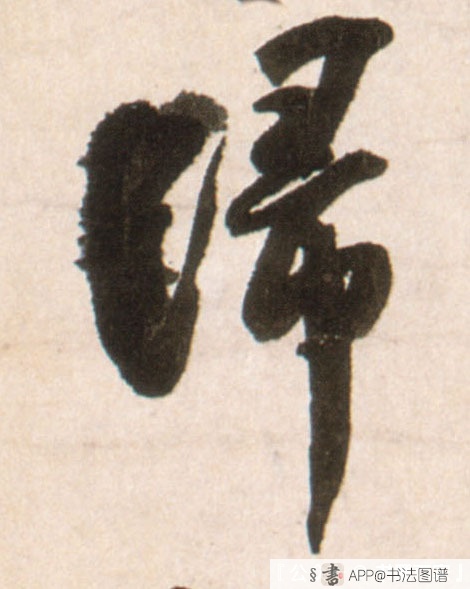 歸
§書 APP@书法图谱